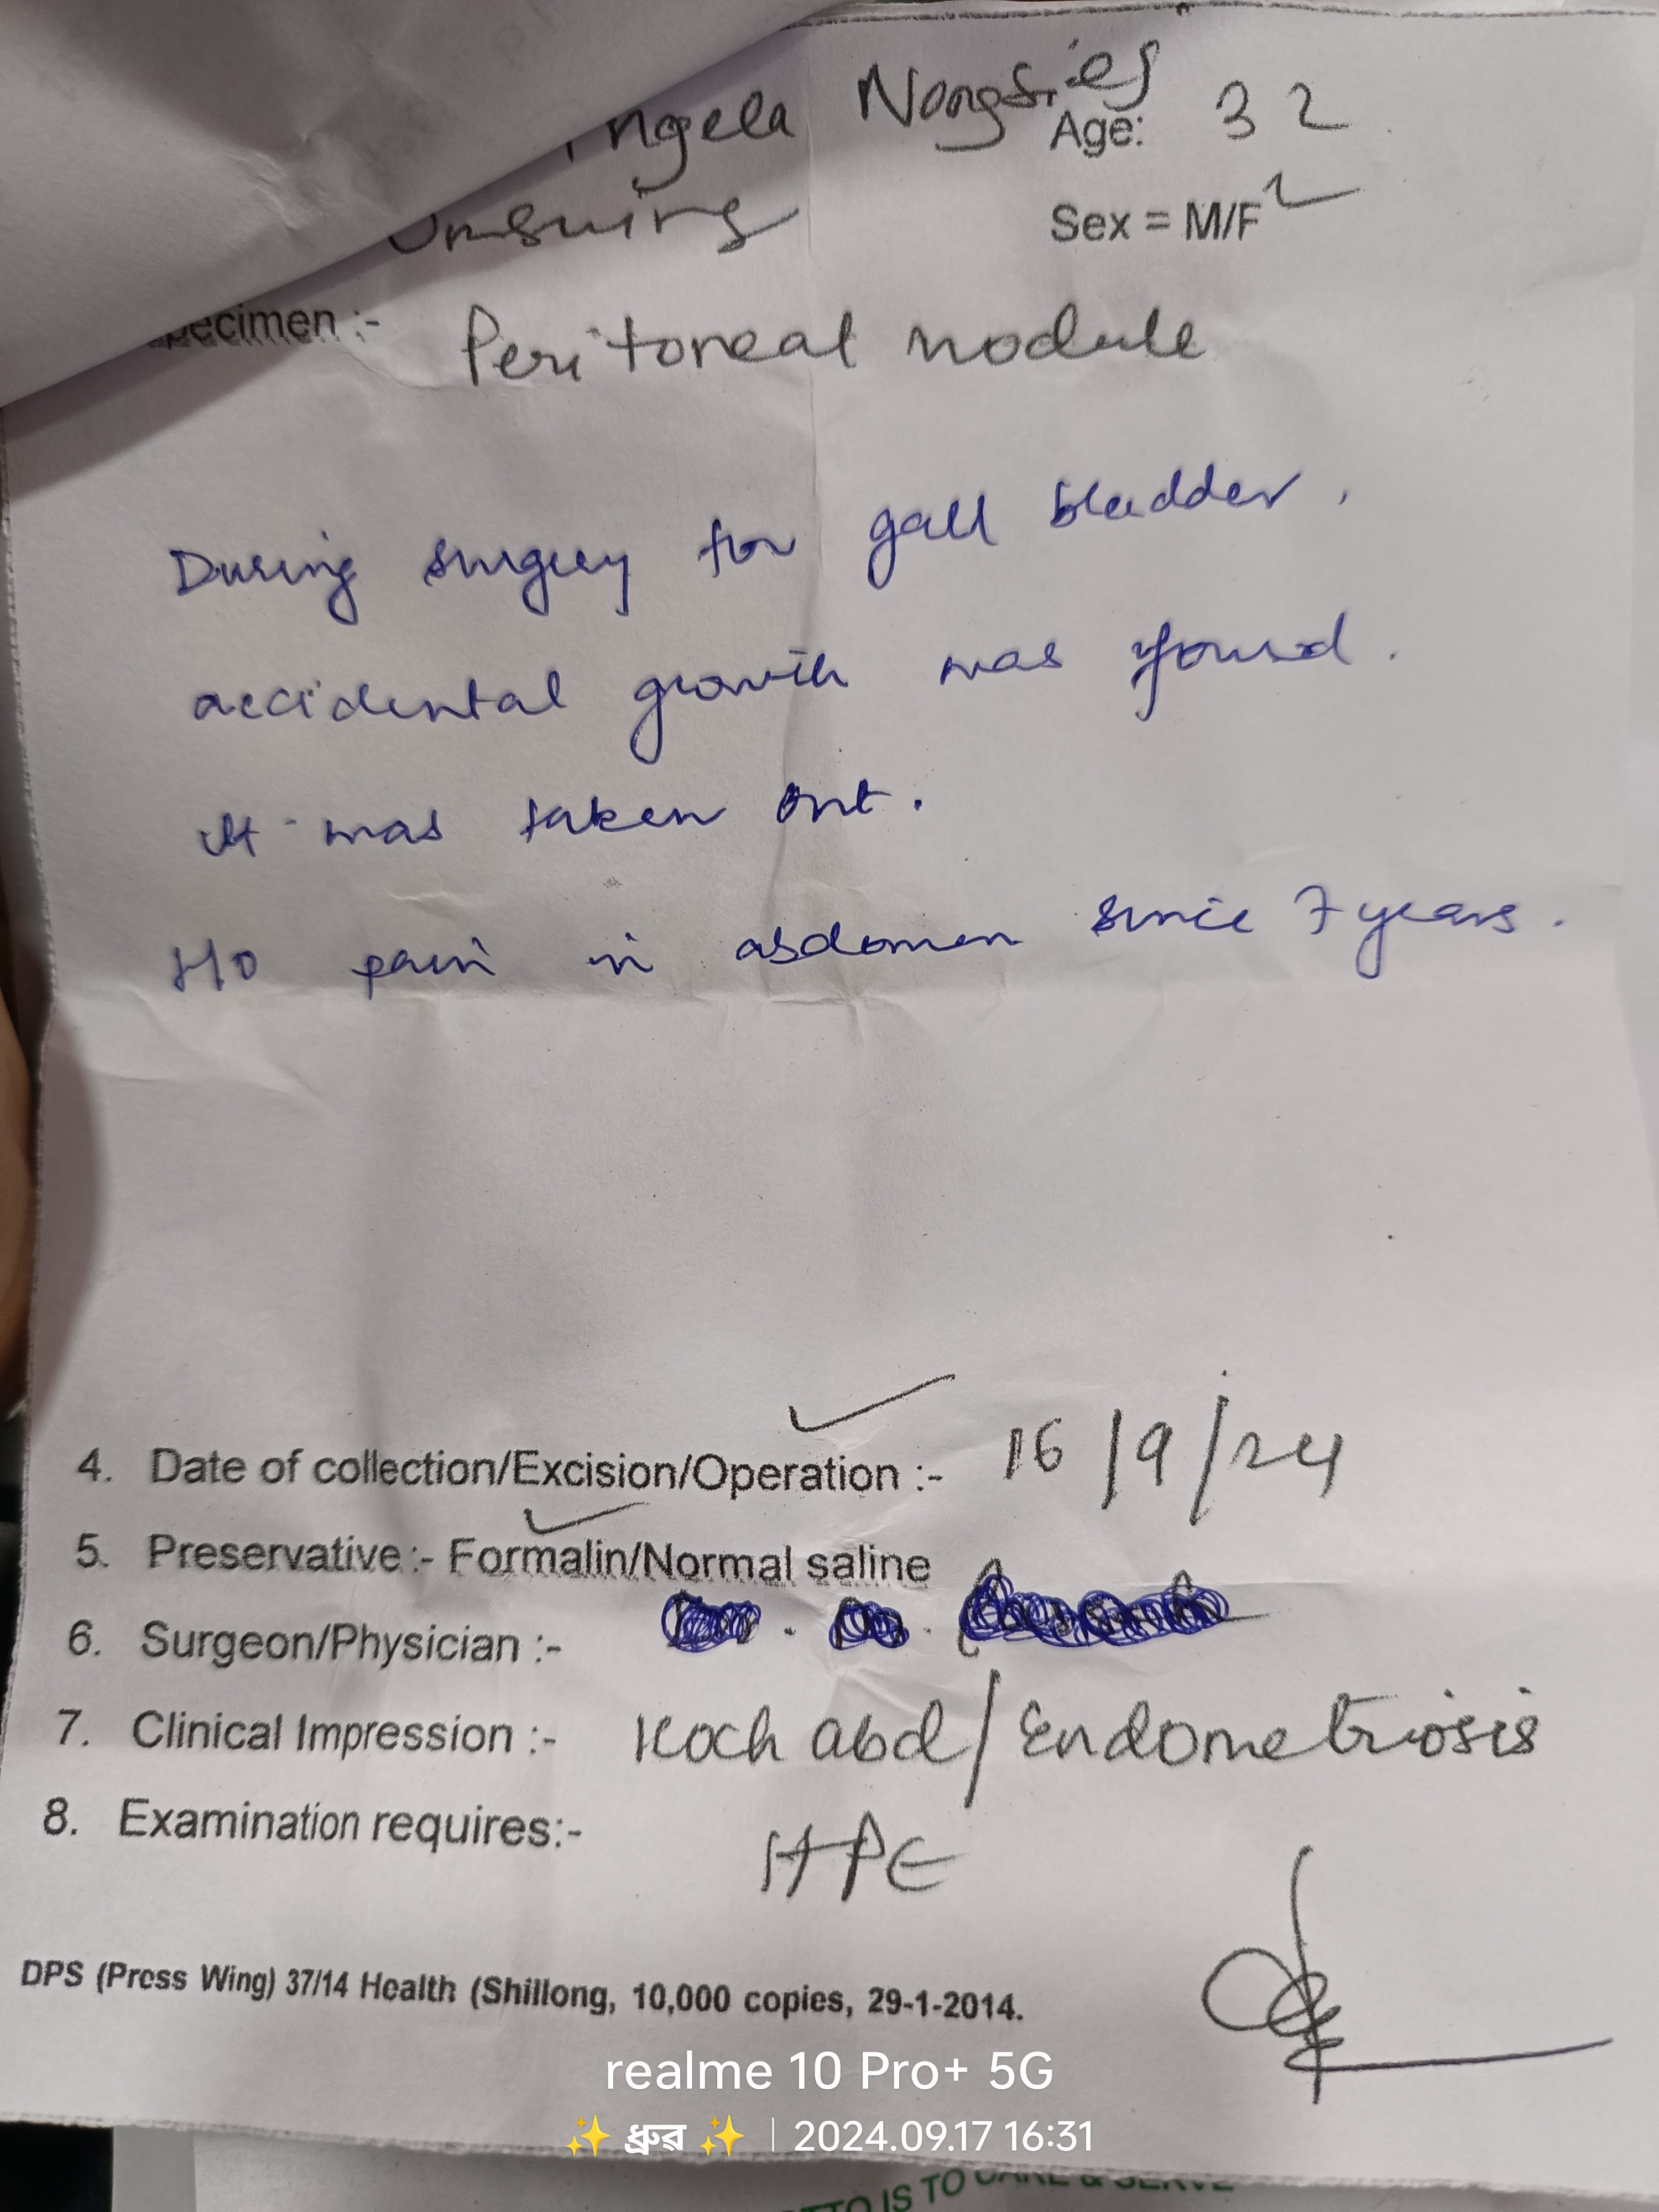 ngela Nongsiej
Age: 32
Umsning
Sex = M/F
pecimen :- Peritoneal nodule
During surgery for gall bladder.
accidental growth was found.
It was taken out.
H/O pain in abdomen since 7 years.
4. Date of collection/Excision/Operation :- 16/9/24
5. Preservative:- Formalin/Normal saline
6. Surgeon/Physician :-
7. Clinical Impression :- Koch abd/Endometriosis
8. Examination requires:- HPE
DPS (Press Wing) 37/14 Health (Shillong, 10,000 copies, 29-1-2014.
realme 10 Pro+ 5G
✨ ধ্ৰুৱ ✨ | 2024.09.17 16:31
IS TO CARE & SERVE